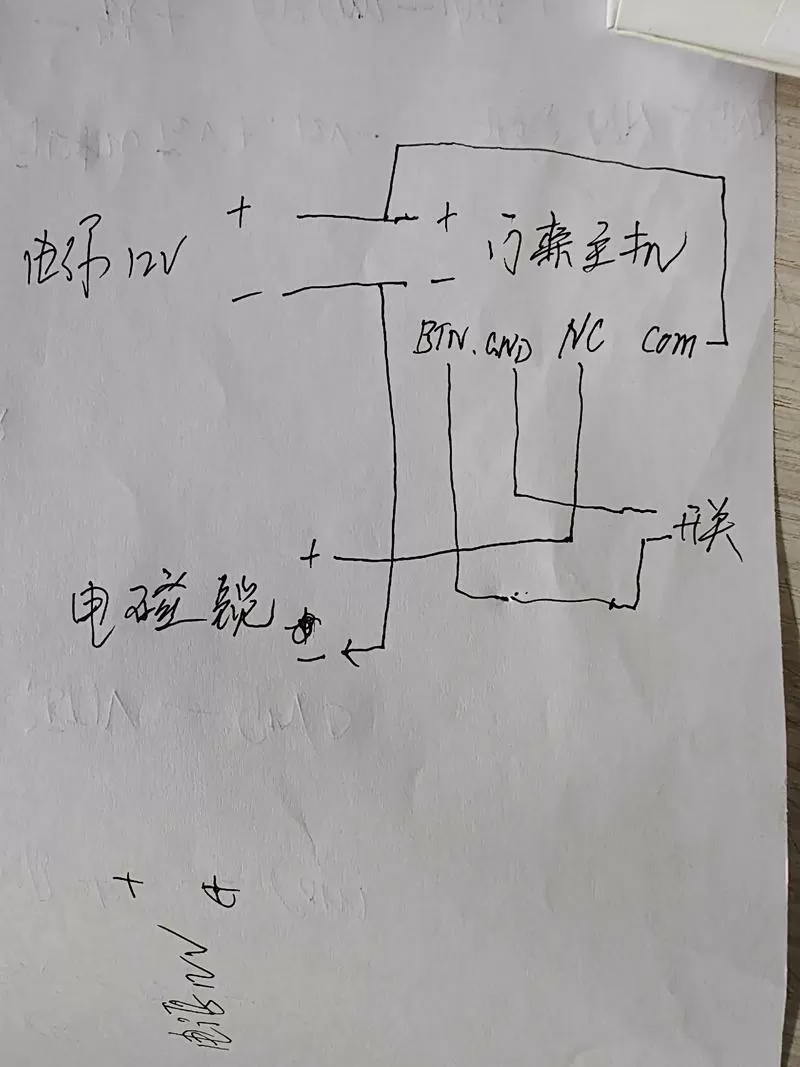 + +
电源 12V 门禁主机
- -
BTN. GND NC Com
开关
+
电磁锁
-
+
电源12V